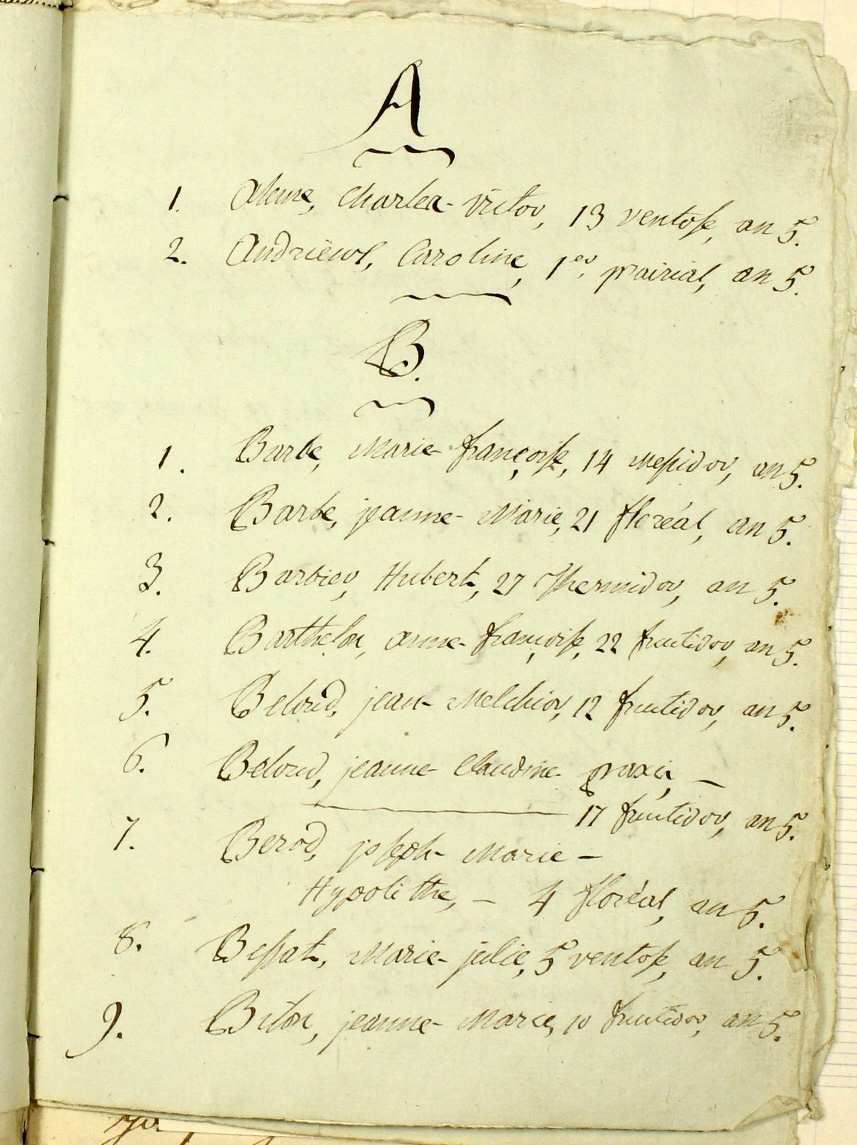 A
1. Charles-Victor, 13 ventose, an 5.
2. Caroline, 1er. prairial, an 5.
B.
1. Barbe, Marie-françoise, 14 messidor, an 5.
2. Barbe, jeanne-Marie, 21 floréal, an 5.
3. Barbier, Hubert, 27 Thermidor, an 5.
4. Barthelon, anne-françoise, 22 fructidor, an 5.
5. jean-Melchior, 12 fructidor, an 5.
6. jeanne-Claudine
17 fructidor, an 5.
7. Berod, joseph-Marie-
Hypolithe, - 4 floréal, an 5.
8. Bessat, Marie-julie, 5 ventose, an 5.
9. Biton, jeanne-Marie, 10 fructidor, an 5.